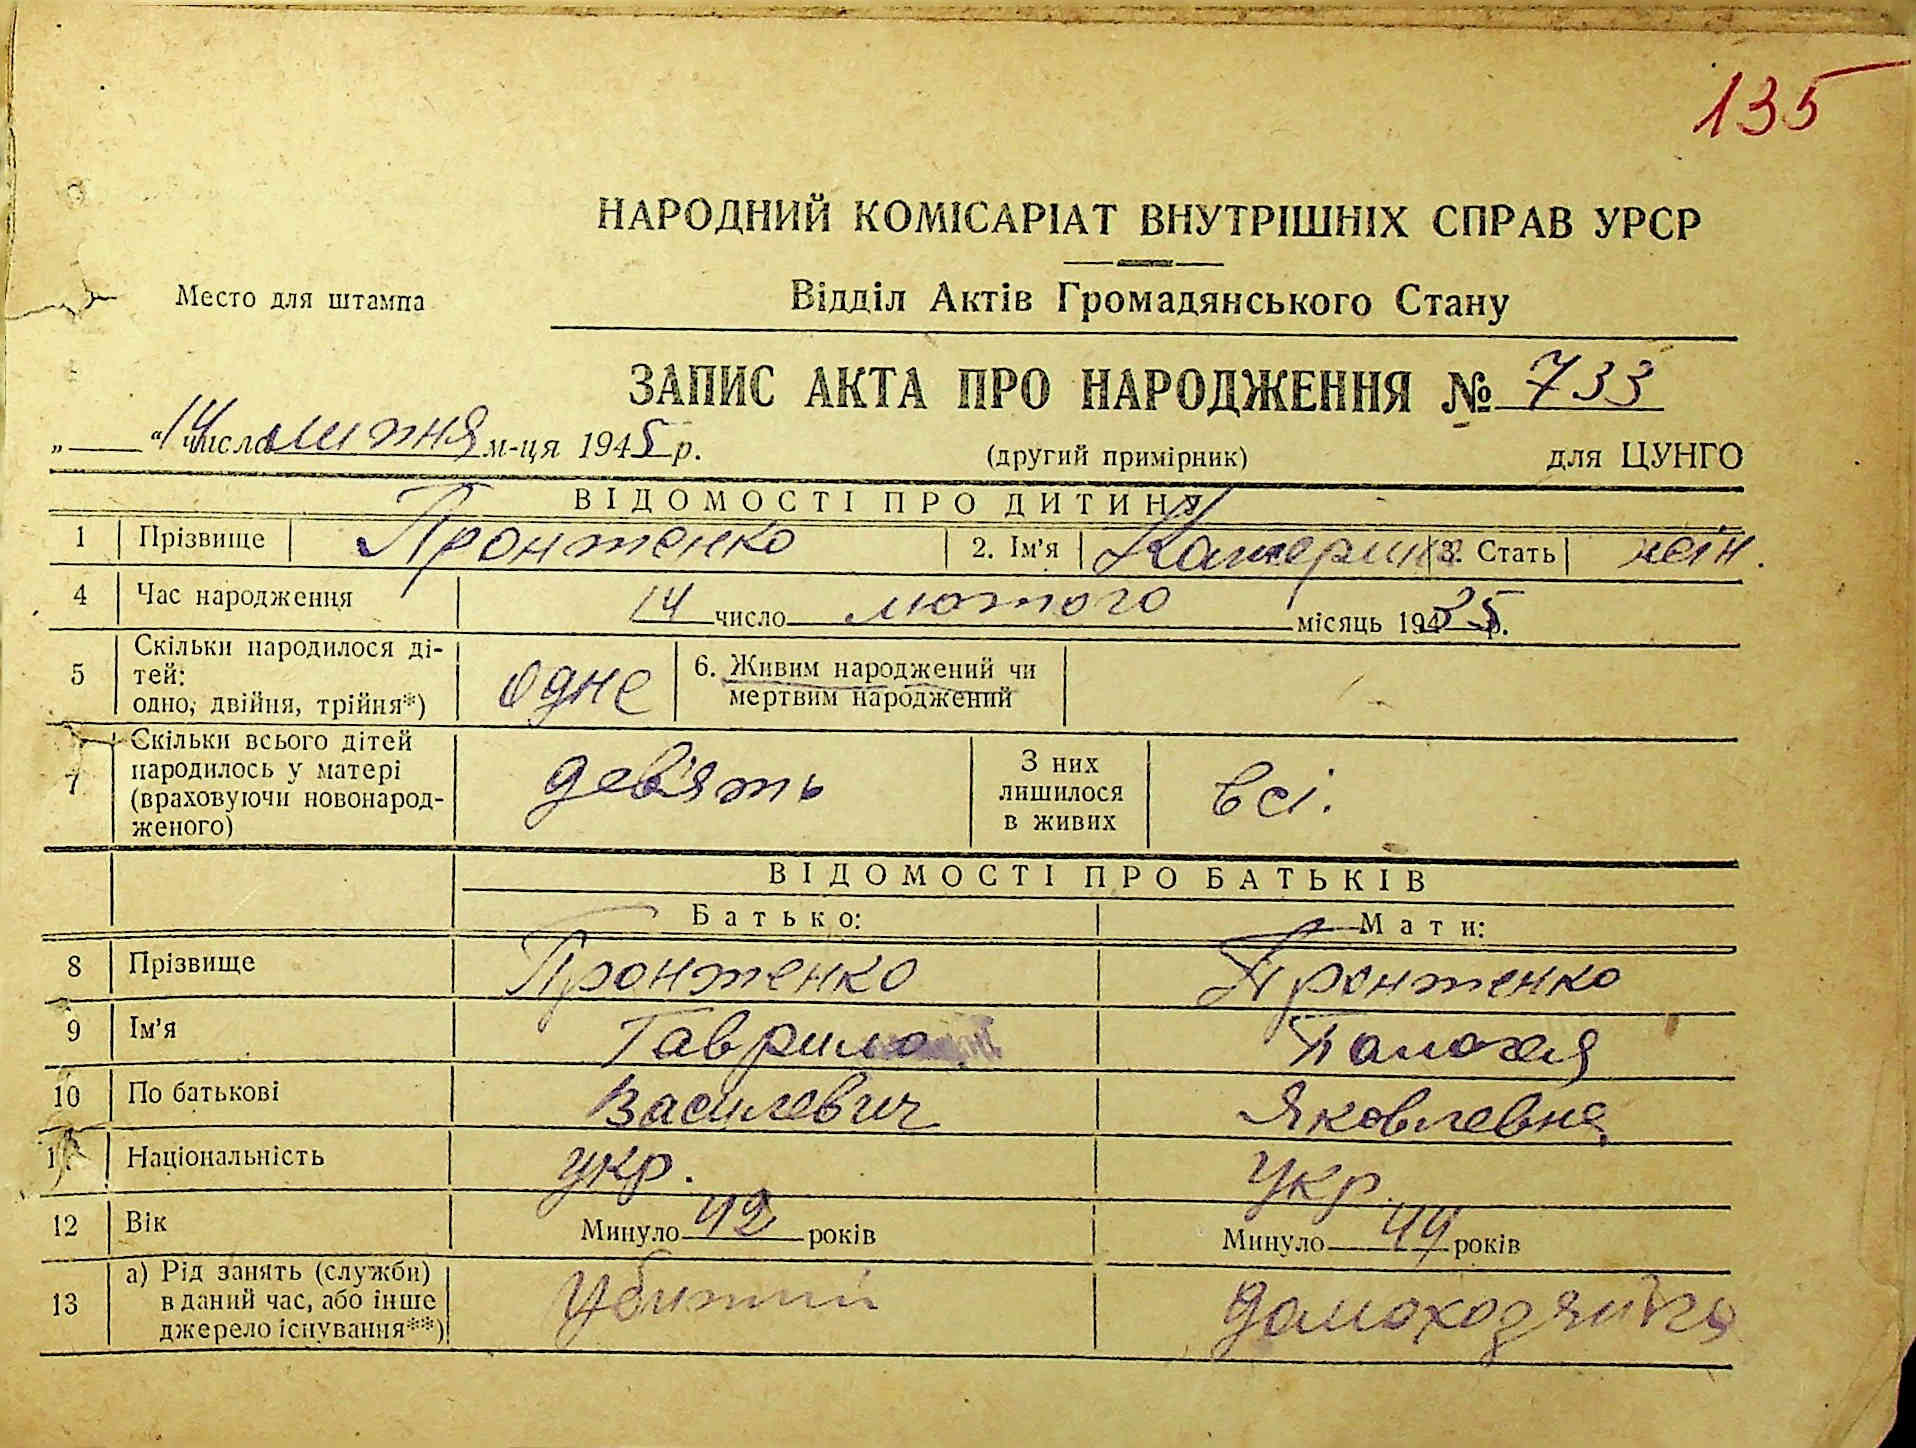 135
НАРОДНИЙ КОМІСАРІАТ ВНУТРІШНІХ СПРАВ УРСР
Место для штампа
Відділ Актів Громадянського Стану
ЗАПИС АКТА ПРО НАРОДЖЕННЯ № 733
„ “ 14 числа липня м-ця 1945 р. (другий примірник) для ЦУНГО
ВІДОМОСТІ ПРО ДИТИНУ
1 Прізвище Пронтенко 2. Ім'я Катерина 3. Стать жін.
4 Час народження 14 число лютого місяць 1935 р.
5 Скільки народилося ді-
тей:
одно, двійня, трійня*) одне 6. Живим народжений чи
мертвим народжений
7 Скільки всього дітей
народилось у матері
(враховуючи новонарод-
женого) дев'ять З них
лишилося
в живих всі.
ВІДОМОСТІ ПРО БАТЬКІВ
Батько: Мати:
8 Прізвище Пронтенко Пронтенко
9 Ім'я Гаврило
10 По батькові Василевич Яковлевна
11 Національність укр. укр.
12 Вік Минуло 42 років Минуло 44 років
13 а) Рід занять (служби)
в даний час, або інше
джерело існування**) Убитий домохозяйка